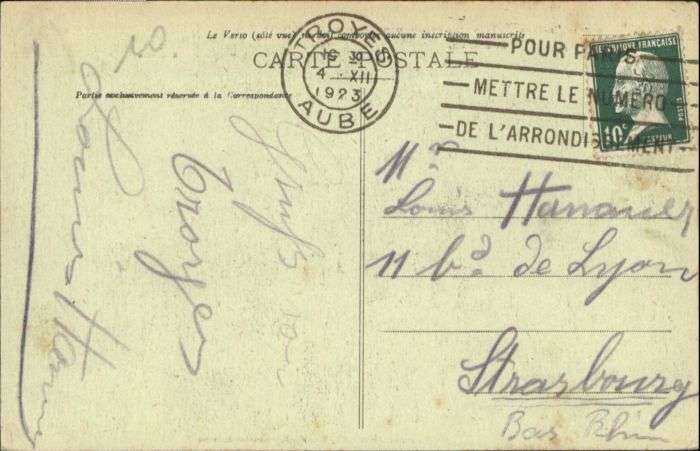 Le Verso (côté vue) ne doit comporter aucune inscription manuscrite
CARTE POSTALE
Partie exclusivement réservée à la Correspondance
TROYES
4 XII
1923
AUBE
POUR PARIS
METTRE LE NUMÉRO
DE L'ARRONDISSEMENT
RÉPUBLIQUE FRANÇAISE
10c
POSTES
PASTEUR
Troyes
Louis
Mr
Louis Hanauer
11 bd. de Lyon
Strasbourg
Bas Rhin